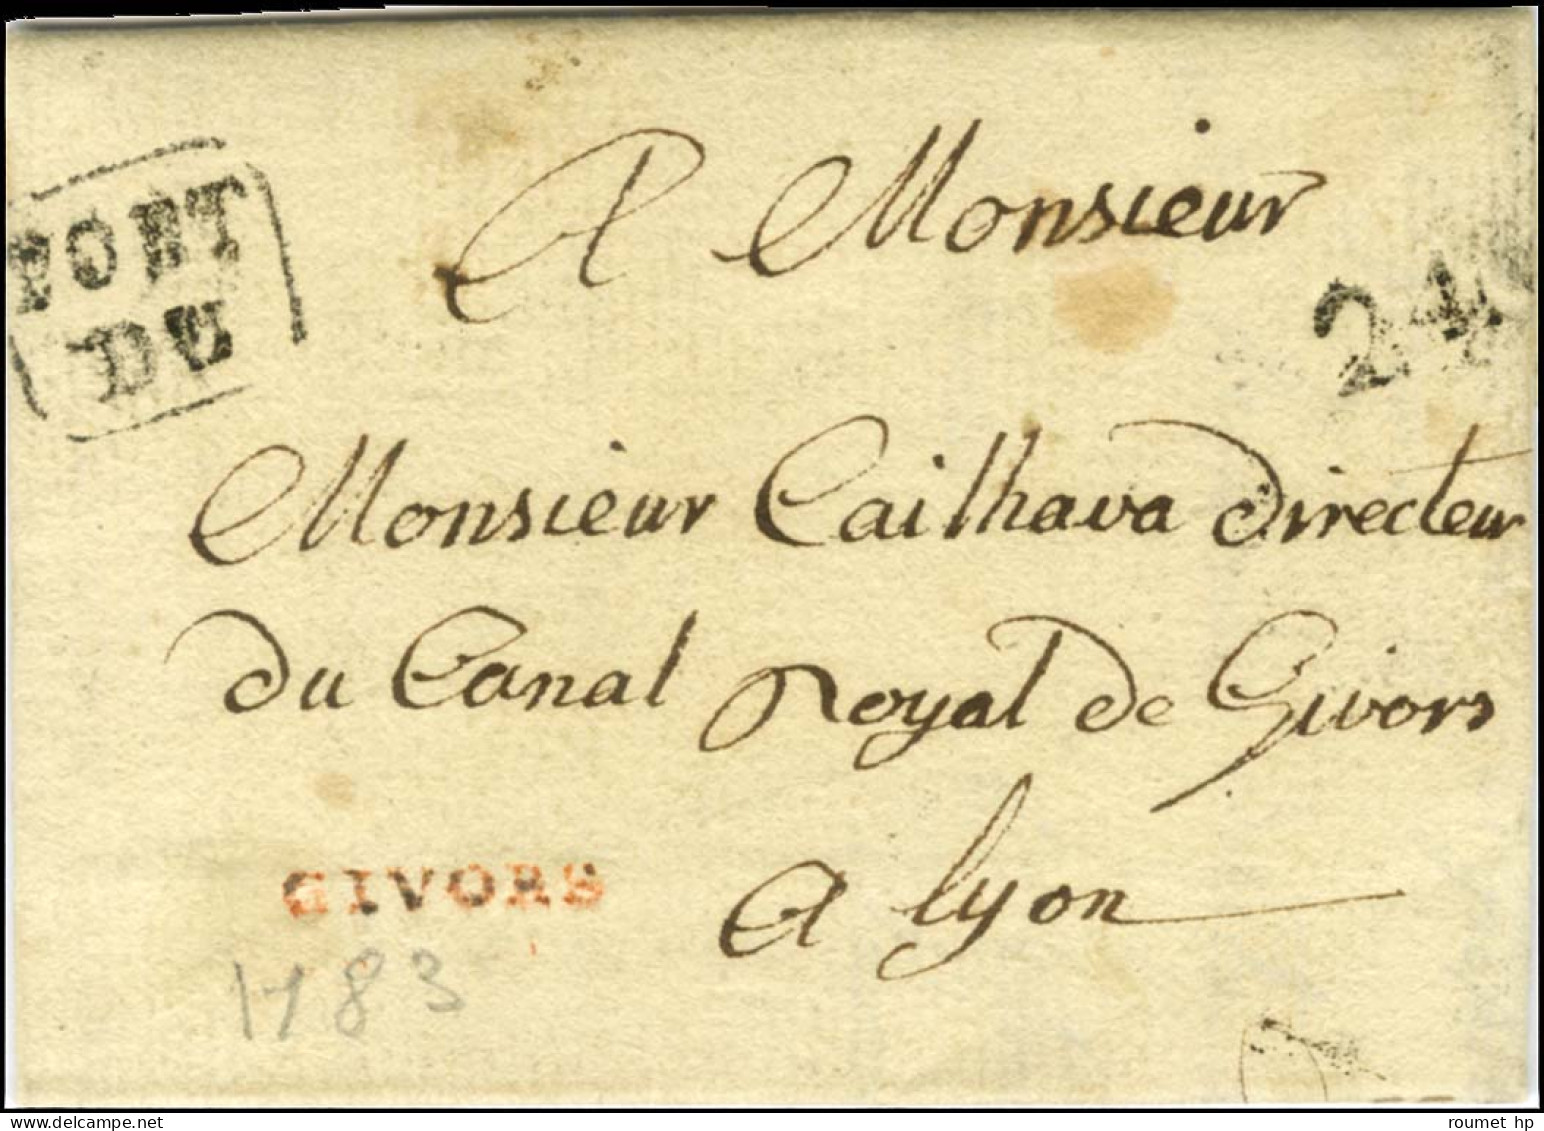 A Monsieur
PORT
DU
24
Monsieur Cailhava directeur
du Canal Royal de Givors
A lyon
GIVORS
1783
roumet hp